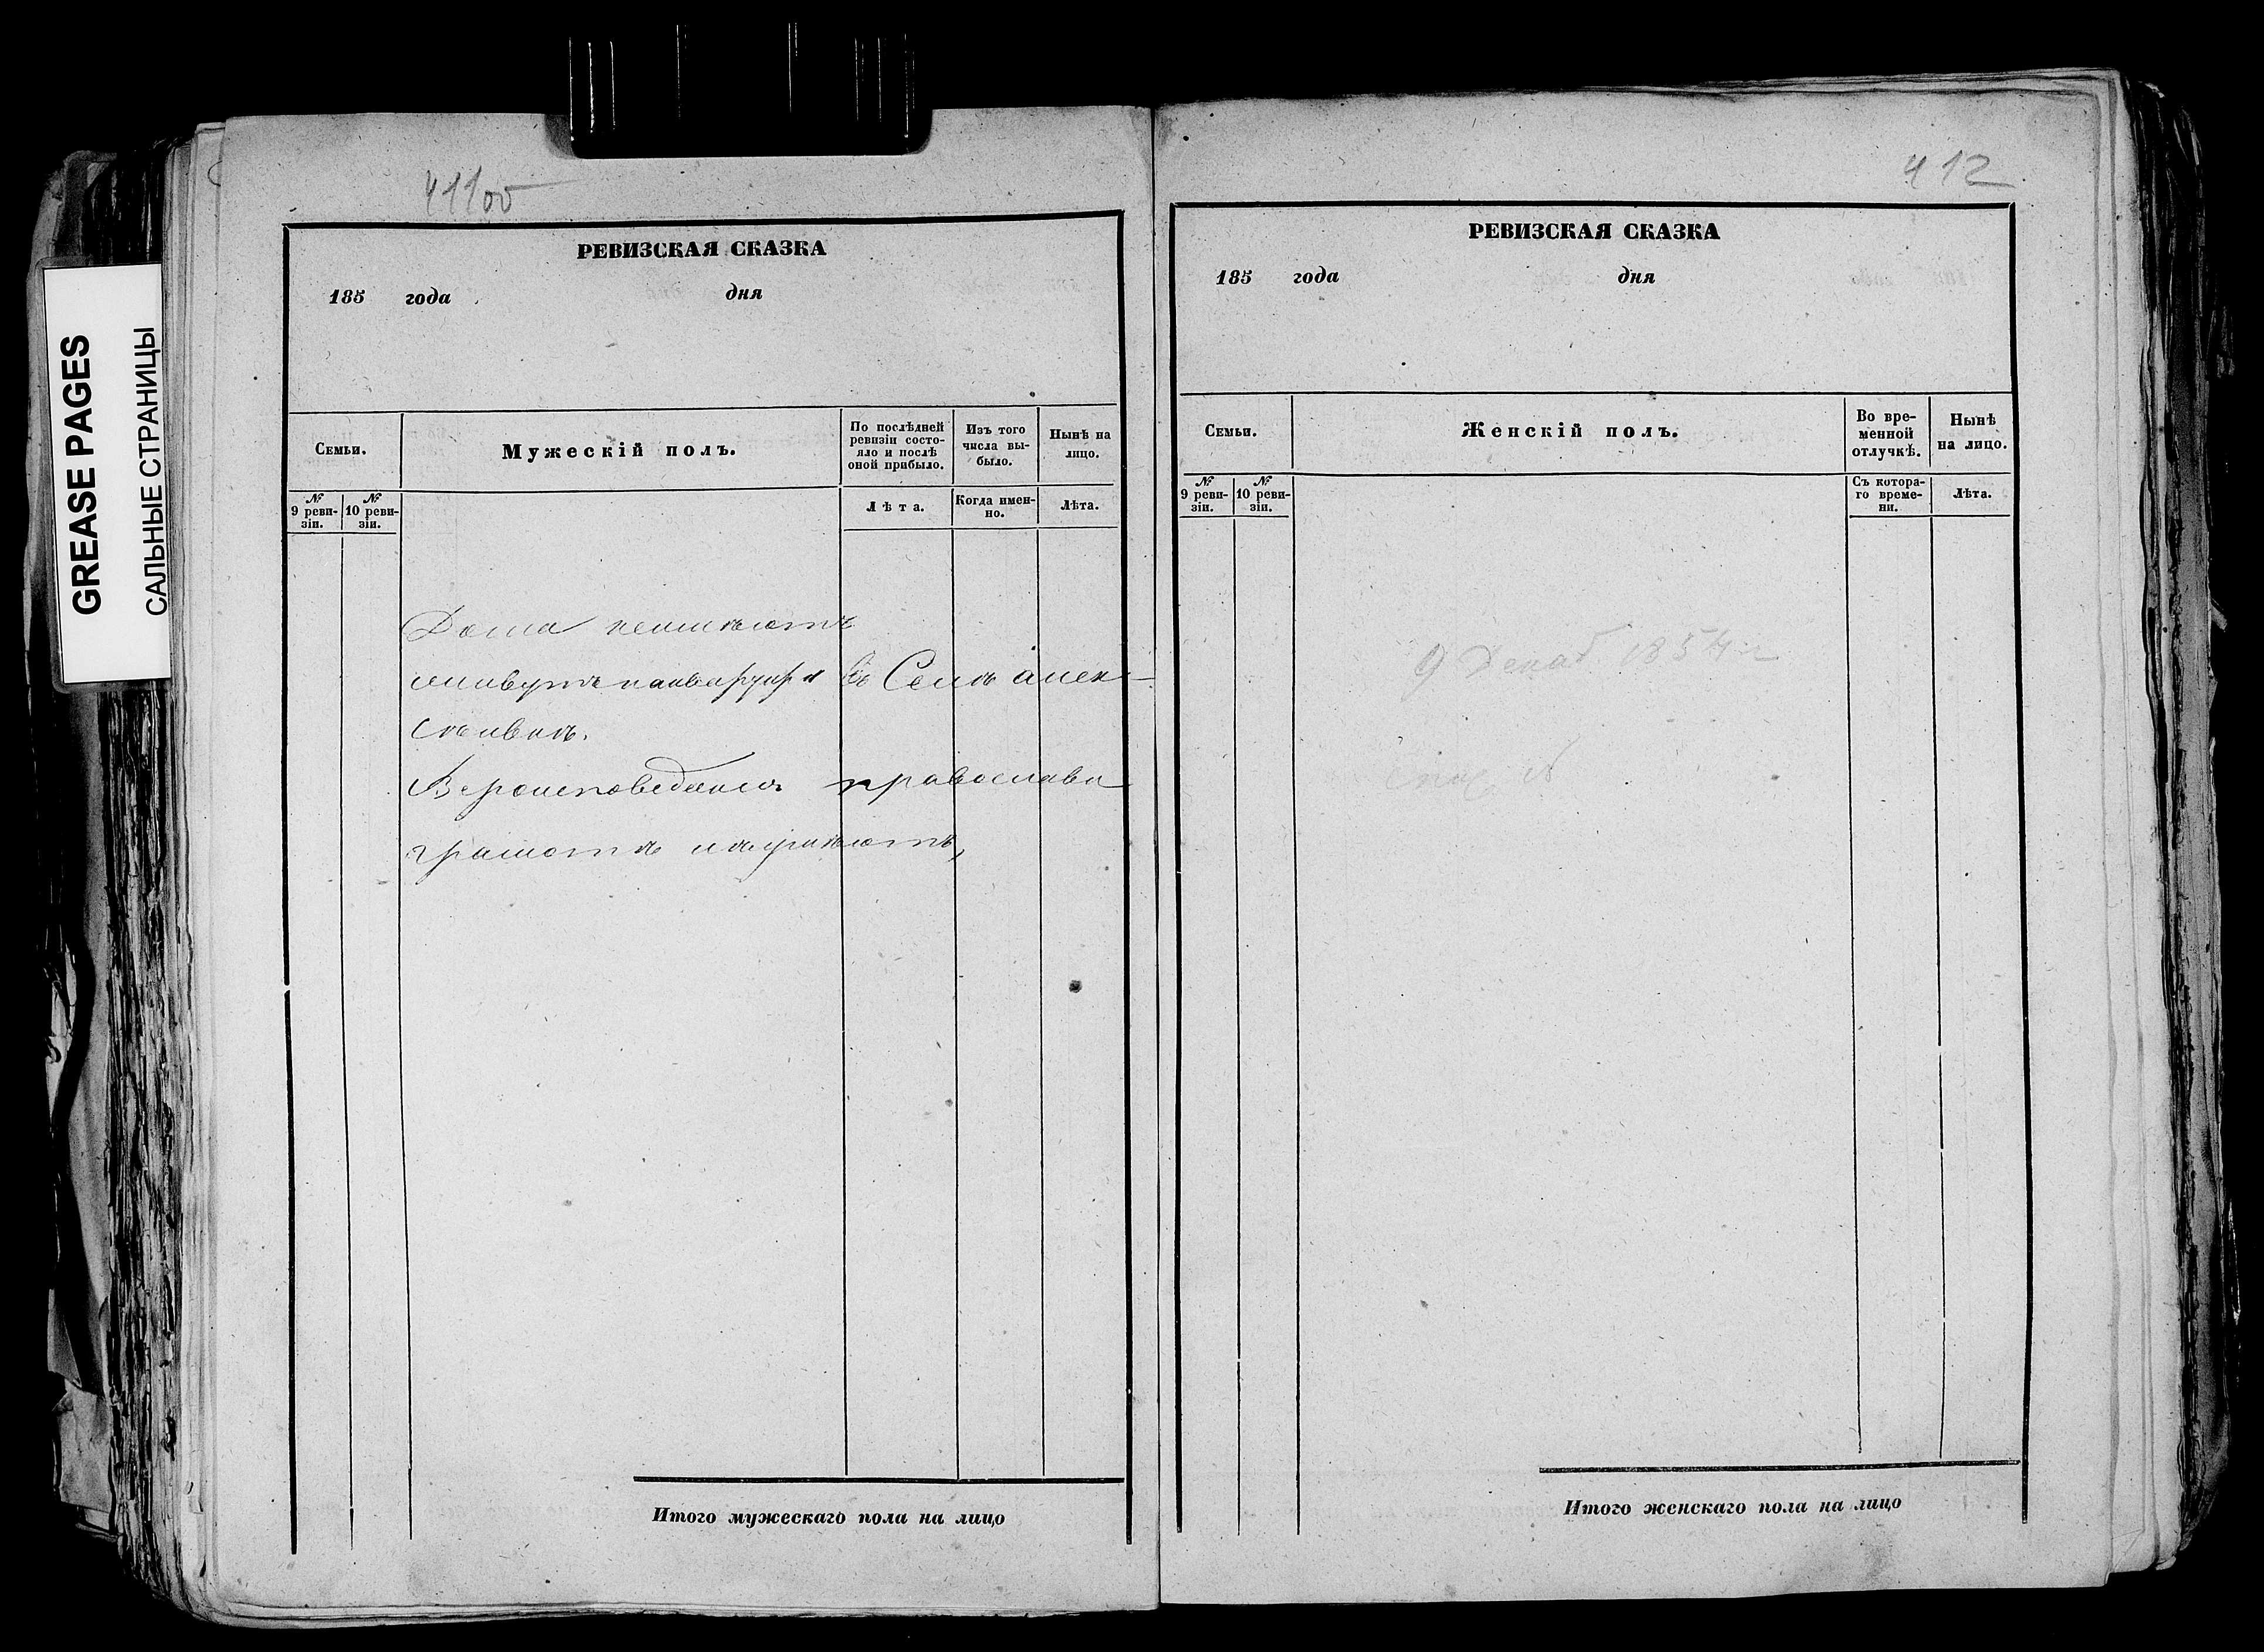 GREASE PAGES
САЛЬНЫЕ СТРАНИЦЫ
411об
РЕВИЗСКАЯ СКАЗКА
185 года дня
Семьи.
Мужескій полъ.
По послѣдней ревизіи состо-
яло и послѣ оной прибыло.
Изъ того числа вы-
было.
Нынѣ на лицо.
№ 9 реви-
зіи.
№ 10 реви-
зіи.
Лѣта.
Когда имен-
но.
Лѣта.
Дома неимѣютъ
живутъ наквартиръ въ Селѣ алек-
сѣивкѣ.
Вероисповеданія православн
грамотѣ неумѣютъ,
Итого мужескаго пола на лицо
412
РЕВИЗСКАЯ СКАЗКА
185 года дня
Семьи.
Женскій полъ.
Во вре-
менной
отлучкѣ.
Нынѣ
на лицо.
№ 9 реви-
зіи.
№ 10 реви-
зіи.
Съ котора-
го време-
ни.
Лѣта.
9 Декаб 1857 г
Итого женскаго пола на лицо